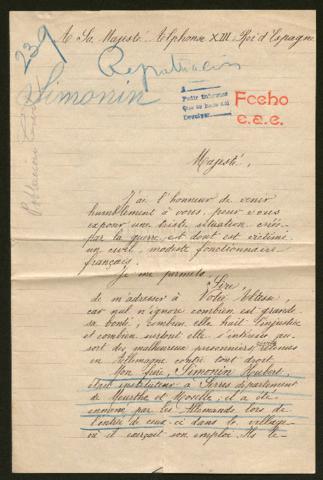 A Sa Majesté Alphonse XIII Roi d'Espagne
239
Repatriación
Simonin
Poblacion civil
Pedir informes
que se hace así
Devolver
Fcého
e.a.e.
Majesté,
J'ai l'honneur de venir
humblement à vous, pour vous
exposer une triste situation créée
par la guerre, et dont est victime
un civil, modeste fonctionnaire
français.
Je me permets, Sire
de m'adresser à Votre Altesse,
car nul n'ignore combien est grande
sa bonté, combien elle hait l'injustice
et combien surtout elle s'intéresse au
sort des malheureux prisonniers retenus
en Allemagne contre tout droit.
Mon frère, Simonin Hubert,
était instituteur à Serres département
de Meurthe et Moselle; il a été
emmené par les Allemands lors de
l'entrée de ceux-ci dans le village
où il exerçait son emploi. Ils le